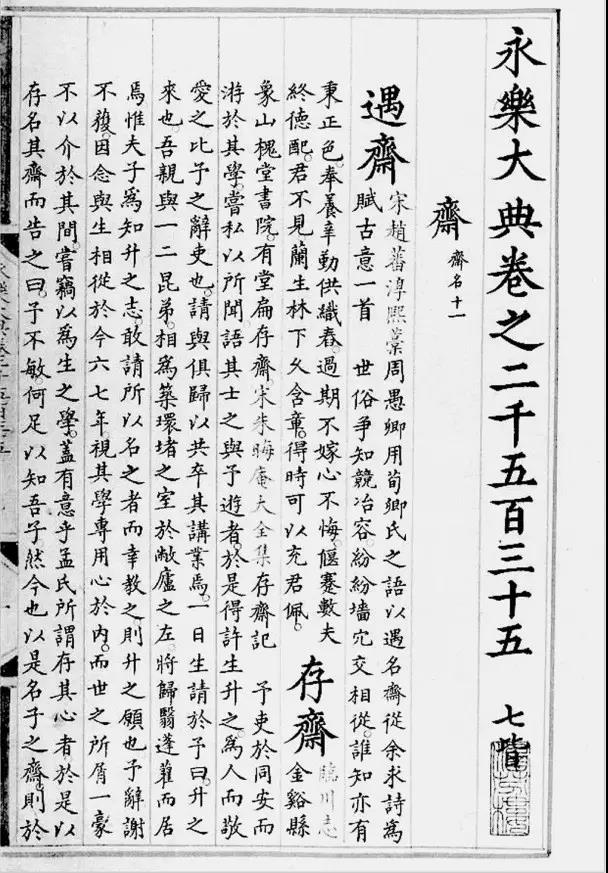 永樂大典卷之二千五百三十五 七皆
涵芬樓
齋 齋名十一
遇齋 宋趙蕃淳熙稾周愚卿用荀卿氏之語以遇名齋從余求詩為
賦古意一首 世俗爭知競冶容紛紛墻穴交相從誰知亦有
秉正色奉養辛勤供織舂過期不嫁心不悔偃蹇數夫
終德配君不見蘭生林下久含章得時可以充君佩
存齋 臨川志
金谿縣
象山槐堂書院有堂扁存齋宋朱晦庵大全集存齋記 予吏於同安而
游於其學嘗私以所聞語其士之與予遊者於是得許生升之為人而敬
愛之比予之辭吏也請與俱歸以共卒其講業焉一日生請於予曰升之
來也吾親與一二昆弟相為築環堵之室於敝廬之左將歸翳蓬藋而居
焉惟夫子為知升之志敢請所以名之者而幸教之則升之願也予辭謝
不獲因念與生相從於今六七年視其學專用心於內而世之所屑一豪
不以介於其間嘗竊以為生之學蓋有意乎孟氏所謂存其心者於是以
存名其齋而告之曰予不敏何足以知吾子然今也以是名子之齋則於